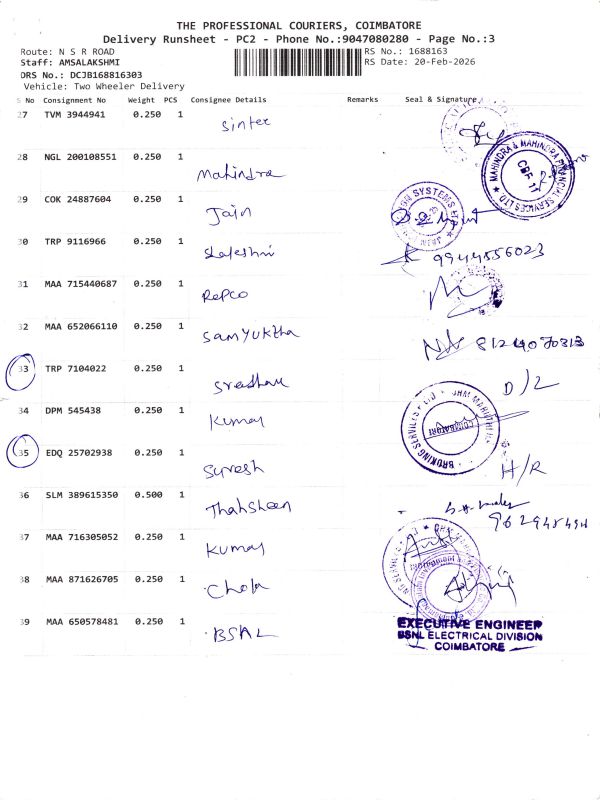 THE PROFESSIONAL COURIERS, COIMBATORE
Delivery Runsheet - PC2 - Phone No.:9047080280 - Page No.:3
Route: N S R ROAD
RS No.: 1688163
Staff: AMSALAKSHMI
RS Date: 20-Feb-2026
DRS No.: DCJB168816303
Vehicle: Two Wheeler Delivery
S No Consignment No Weight PCS Consignee Details Remarks Seal & Signature
27 TVM 3944941 0.250 1 Sinter
28 NGL 200108551 0.250 1 Mahindra
MAHINDRA & MAHINDRA FINANCIAL SERVICES LTD.
29 COK 24887604 0.250 1 Jain
30 TRP 9116966 0.250 1 9944556023
31 MAA 715440687 0.250 1 Repco
32 MAA 652066110 0.250 1 Samyuktha
33 TRP 7104022 0.250 1 D/L
34 DPM 545438 0.250 1 Kumar
BROKING SERVICES
COIMBATORE
35 EDQ 25702938 0.250 1 Suresh H/R
36 SLM 389615350 0.500 1 Thahsheen
37 MAA 716305052 0.250 1 Kumar
38 MAA 871626705 0.250 1 Chola
39 MAA 650578481 0.250 1 BSNL
EXECUTIVE ENGINEER
BSNL ELECTRICAL DIVISION
COIMBATORE